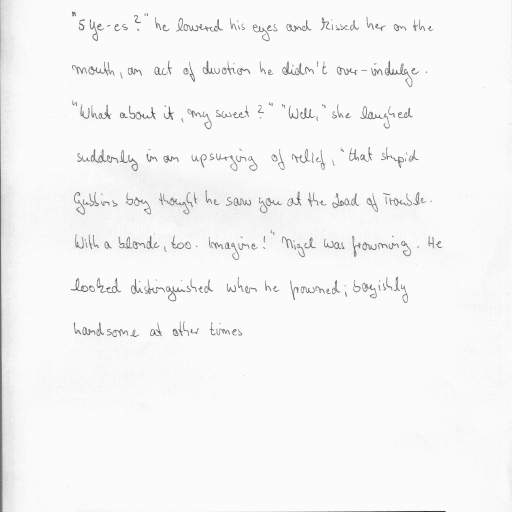 "5Ye-es?" he lowered his eyes and kissed her on the
mouth, an act of devotion he didn't over-indulge.
"What about it, my sweet?" "Well," she laughed
suddenly in an upsurging of relief, "that stupid
Gubbins boy thought he saw you at the Load of Trouble.
With a blonde, too. Imagine!" Nigel was frowning. He
looked distinguished when he frowned; boyishly
handsome at other times